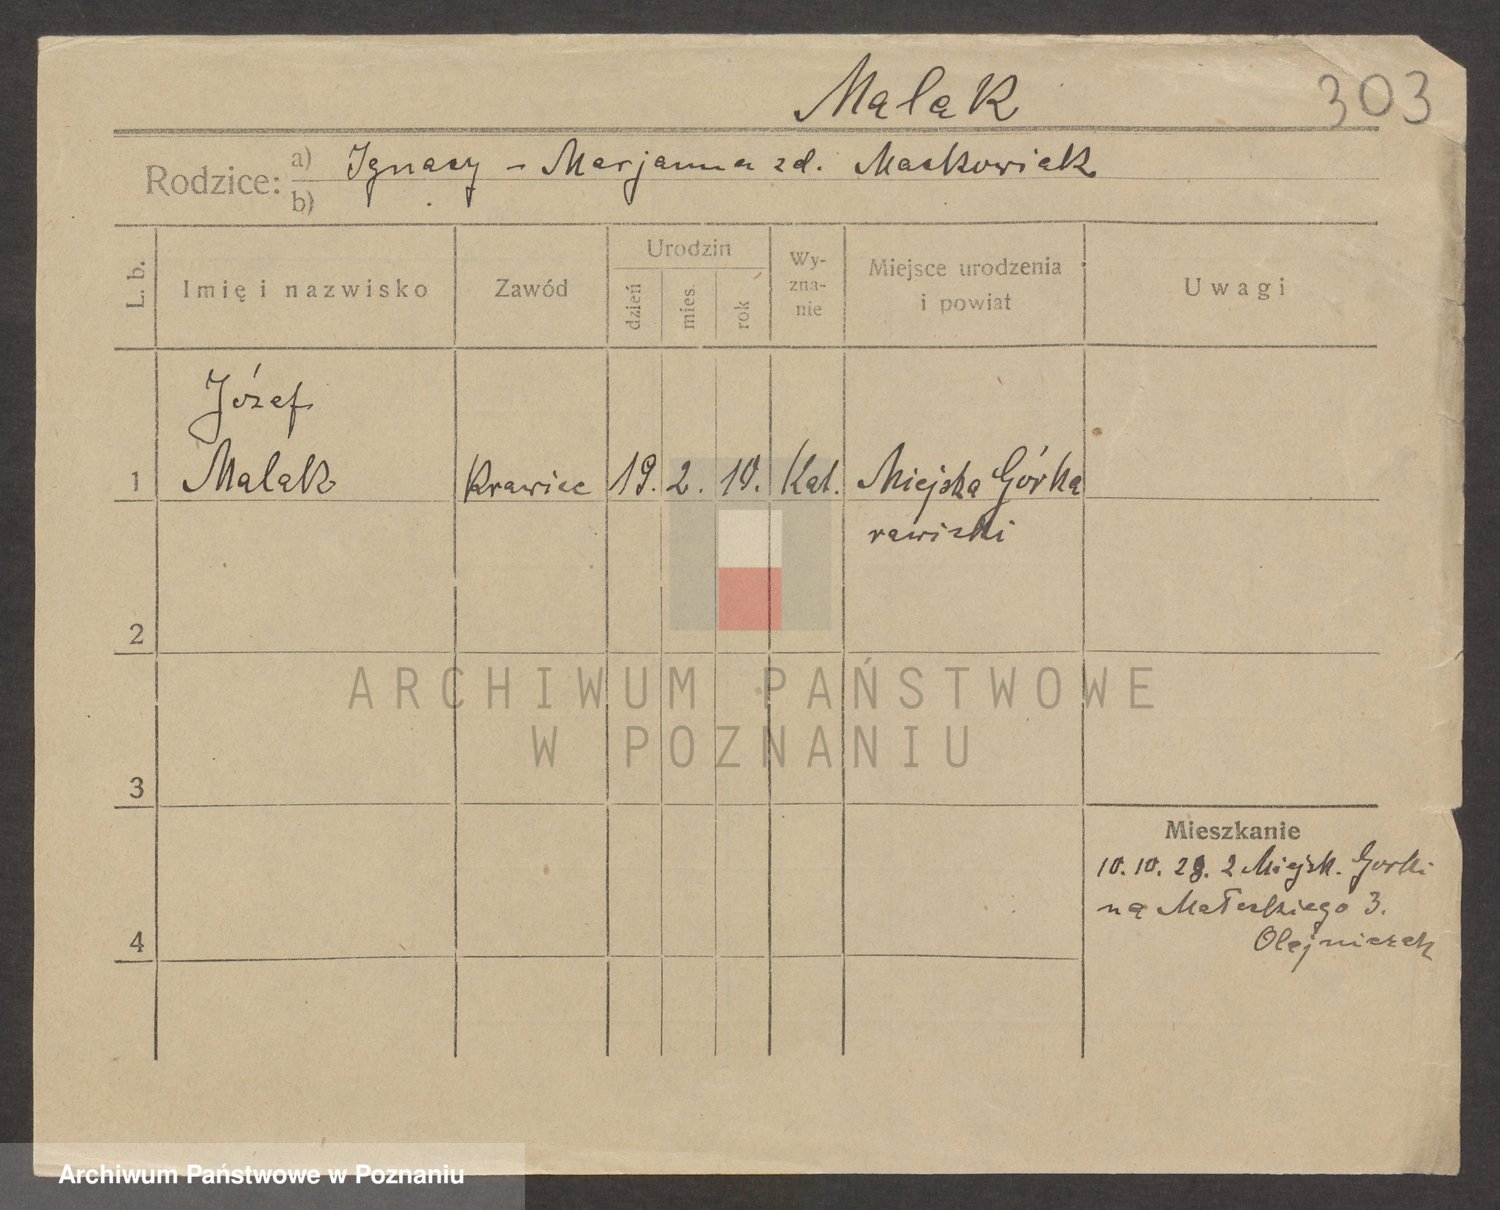 Malak 303
Rodzice: a) Ignacy – Marjanna zd. Maćkowiak
b)
L. b. Imię i nazwisko Zawód Urodzin dzień mies. rok Wy-zna-nie Miejsce urodzenia i powiat Uwagi
Józef
1 Malak Krawiec 19. 2. 10. Kat. Miejska Górka
rawicki
2
ARCHIWUM PAŃSTWOWE
W POZNANIU
3
Mieszkanie
10. 10. 28. z Miejsk. Gorki
na Małeckiego 3.
4
Olejniczak
Archiwum Państwowe w Poznaniu